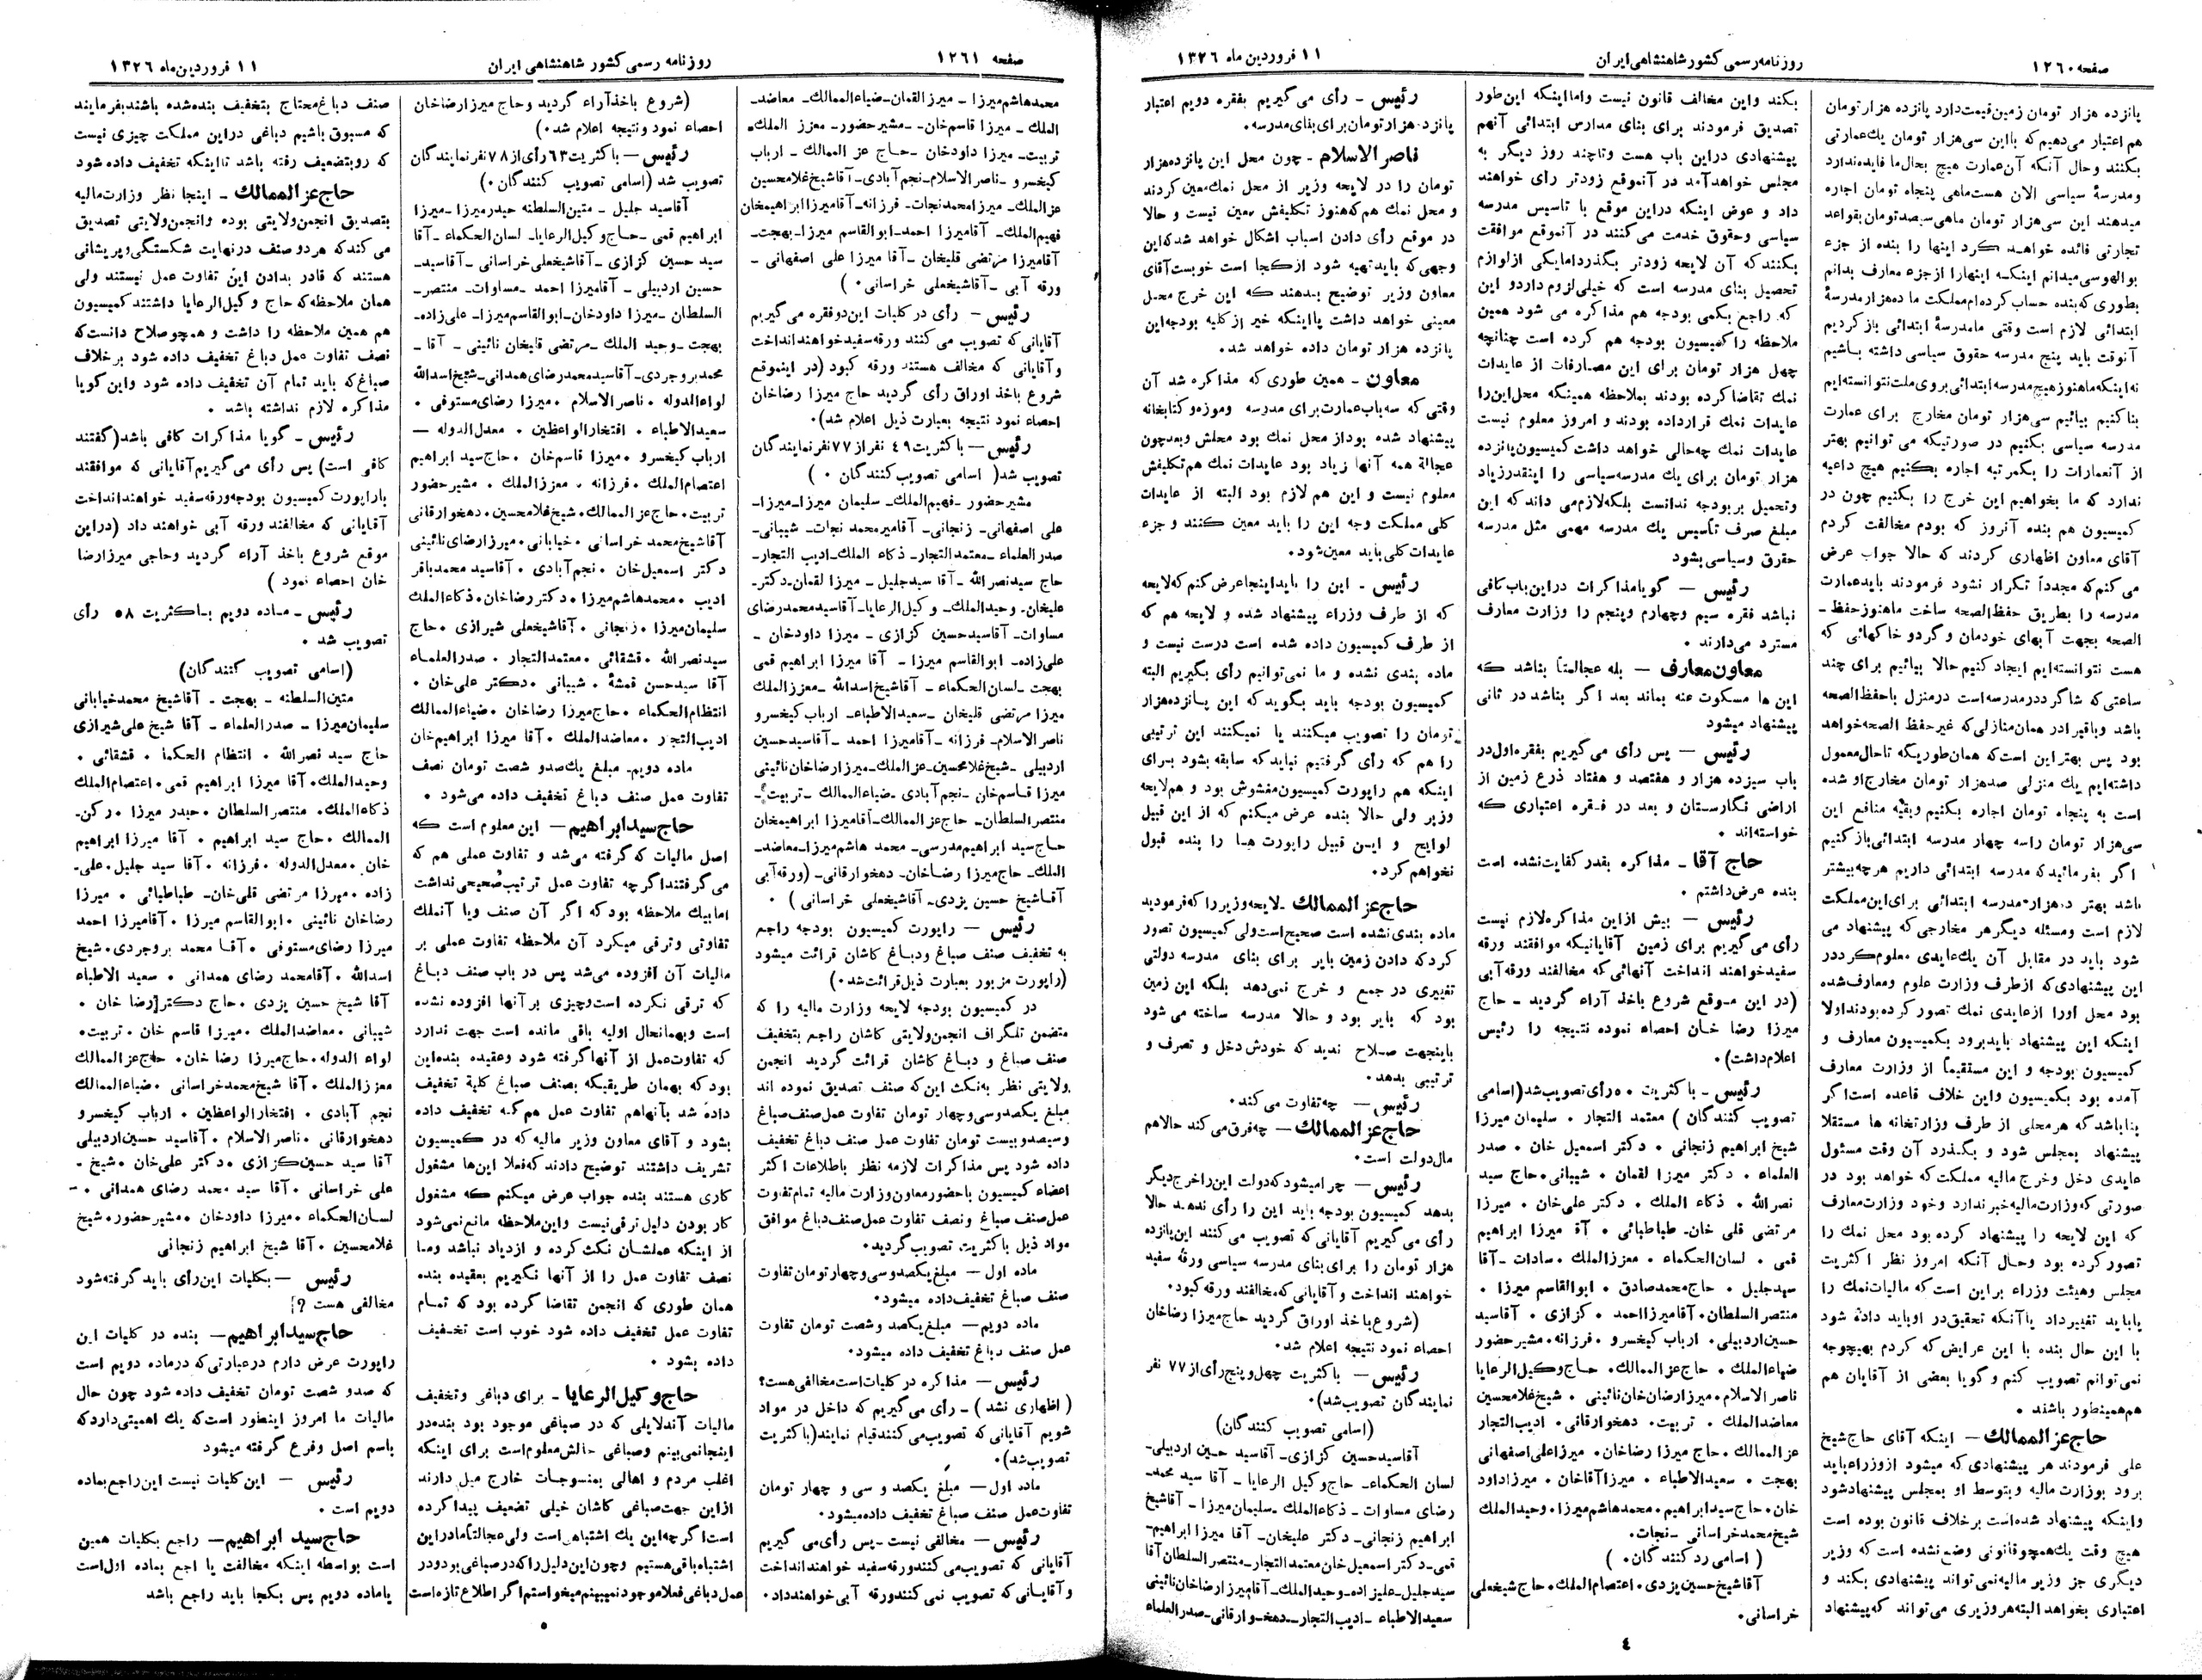 صفحه ۱۲٦۰
روزنامه رسمی کشور شاهنشاهی ایران
۱۱ فروردین ماه ۱۳۲٦
پانزده هزار تومان زمین قیمت دارد پانزده هزار تومان
هم اعتبار می‌دهیم که بااین سی‌هزار تومان یك عمارتی
بکنند وحال آنکه آن عمارت هیچ بحال ما فایده ندارد
ومدرسهٔ سیاسی الان هست ماهی پنجاه تومان اجاره
میدهند این سی‌هزار تومان ماهی سیصد تومان بقواعد
تجارتی فائده خواهد کرد اینها را بنده از جزء
بوالهوسی میدانم اینکه اینهارا ازجزء معارف بدانم
بطوری که بنده حساب کرده‌ام مملکت ما ده هزار مدرسهٔ
ابتدائی لازم است وقتی ما مدرسهٔ ابتدائی باز کردیم
آنوقت باید پنج مدرسه حقوق سیاسی داشته باشیم
نه اینکه ما هنوز هیچ مدرسه ابتدائی بروی ملت نتوانسته‌ایم
بنا کنیم بیائیم سی‌هزار تومان مخارج برای عمارت
مدرسه سیاسی بکنیم در صورتیکه می توانیم بهتر
از آنعمارات را بکمر تبه اجاره بکنیم هیچ داعیه
ندارد که ما بخواهیم این خرج را بکنیم چون در
کمیسیون هم بنده آنروز که بودم مخالفت کردم
آقای معاون اظهاری کردند که حالا جواب عرض
می کنم که مجدداً تکرار نشود فرمودند باید عمارت
مدرسه را بطریق حفظ الصحه ساخت ماهنوز حفظ -
الصحه بجهت آبهای خودمان و گردو خاکهائی که
هست نتوانسته‌ایم ایجاد کنیم حالا بیائیم برای چند
ساعتی که شاگرد در مدرسه است در منزل باحفظ الصحه
باشد وباقیر ادر همان منازلی که غیر حفظ الصحه خواهد
بود پس بهتر این است که همان طوریکه تاحال معمول
داشته‌ایم یك منزلی صد هزار تومان مخارج او شده
است به پنجاه تومان اجاره بکنیم وبقیه منافع این
سی‌هزار تومان راسه چهار مدرسه ابتدائی باز کنیم
اگر بفر مائید که مدرسه ابتدائی داریم هر چه بیشتر
باشد بهتر ده هزار مدرسه ابتدائی برای این مملکت
لازم است ومسئله دیگر هر مخارجی که پیشنهاد می
شود باید در مقابل آن یك عایدی معلوم کرد در
این پیشنهادی که از طرف وزارت علوم ومعارف شده
بود محل اورا ازعایدی نمك تصور کرده بودند اولا
اینکه این پیشنهاد باید برود بکمیسیون معارف و
کمیسیون بودجه و این مستقیماً از وزارت معارف
آمده بود بکمیسیون واین خلاف قاعده است اگر
بنا باشد که هر محلی از طرف وزارتخانه ها مستقلا
پیشنهاد بمجلس شود و بگذرد آن وقت مسئول
عایدی دخل وخرج مالیه مملکت که خواهد بود در
صورتی که وزارت مالیه خبر ندارد وخود وزارت معارف
که این لایحه را پیشنهاد کرده بود محل نمك را
تصور کرده بود وحال آنکه امروز نظر اکثریت
مجلس وهیئت وزراء براین است که مالیات نمك را
یا باید تغییر داد یا آنکه تحقیق در او باید داده شود
با این حال بنده با این عرایض که کردم بهیچوجه
نمی توانم تصویب کنم و گویا بعضی از آقایان هم
هم همینطور باشند .
حاج عز الممالك – اینکه آقای حاج شیخ
علی فرمودند هر پیشنهادی که میشود از وزراء باید
برود بوزارت مالیه وبتوسط او بمجلس پیشنهاد شود
واینکه پیشنهاد شده است بر خلاف قانون بوده است
هیچ وقت یك همچو قانونی وضع نشده است که وزیر
دیگری جز وزیر مالیه نمی تواند پیشنهادی بکند و
اعتباری بخواهد البته هر وزیری می تواند که پیشنهاد
بکند واین مخالف قانون نیست واما اینکه این طور
تصدیق فرمودند برای بنای مدارس ابتدائی آنهم
پیشنهادی در این باب هست وتا چند روز دیگر به
مجلس خواهد آمد در آنموقع زودتر رأی خواهند
داد و عوض اینکه در این موقع با تاسیس مدرسه
سیاسی وحقوق خدمت می کنند در آنموقع موافقت
بکنند که آن لایحه زودتر بگذرد اما یکی از لوازم
تحصیل بنای مدرسه است که خیلی لزوم دارد و این
که راجع بکمی بودجه هم مذاکره می شود همین
ملاحظه را کمیسیون بودجه هم کرده است چنانچه
چهل هزار تومان برای این مصارفات از عایدات
نمك تقاضا کرده بودند بملاحظه همینکه محل این را
عایدات نمك قرار داده بودند و امروز معلوم نیست
عایدات نمك چه حالی خواهد داشت کمیسیون پانزده
هزار تومان برای یك مدرسه سیاسی را اینقدر زیاد
وتحمیل بر بودجه ندانست بلکه لازم می داند که این
مبلغ صرف تأسیس یك مدرسه مهمی مثل مدرسه
حقوق وسیاسی بشود
رئیس – گویا مذاکرات در این باب کافی
نباشد فقره سیم وچهارم وپنجم را وزارت معارف
مسترد می دارند .
معاون معارف – بله عجالتاً بناشد که
این ها مسکوت عنه بماند بعد اگر بناشد در ثانی
پیشنهاد میشود
رئیس – پس رأی می گیریم بفقره اول در
باب سیزده هزار و هفتصد و هفتاد ذرع زمین از
اراضی نگارستان و بعد در فقره اعتباری که
خواسته‌اند .
حاج آقا – مذاکره بقدر کفایت نشده است
بنده عرض داشتم .
رئیس – بیش از این مذاکره لازم نیست
رأی می گیریم برای زمین آقایانیکه موافقند ورقه
سفید خواهند انداخت آنهائی که مخالفند ورقه آبی
(در این موقع شروع باخذ آراء گردید – حاج
میرزا رضا خان احصاء نموده نتیجه را رئیس
اعلام داشت).
رئیس – با کثریت ۵۰ رأی تصویب شد (اسامی
تصویب کنندگان ) معتمد التجار . سلیمان میرزا
شیخ ابراهیم زنجانی . دکتر اسمعیل خان . صدر
العلماء . دکتر میرزا لقمان . شیبانی . حاج سید
نصر الله . ذکاء الملك . دکتر علی خان . میرزا
مرتضی قلی خان– طباطبائی . آقا میرزا ابراهیم
قمی . لسان الحکماء . معزز الملك . سادات – آقا
سید جلیل . حاج محمد صادق . ابوالقاسم میرزا .
منتصر السلطان . آقا میرزا احمد . کزازی . آقاسید
حسین اردبیلی . ارباب کیخسرو . فرزانه . مشیر حضور
ضیاء الملك . حاج عز الممالك . حاج وکیل الرعایا
ناصر الاسلام . میرزا رضا خان نائینی . شیخ غلامحسین
معاضد الملك . تربیت . دهخوارقانی . ادیب التجار
عز الممالك . حاج میرزا رضا خان . میرزا علی اصفهانی
بهجت . سعید الاطباء . میرزا آقا خان . میرزا داود
خان . حاج سید ابراهیم . محمد هاشم میرزا . وحید الملك
شیخ محمد خراسانی – نجات .
( اسامی رد کنندگان . )
آقا شیخ حسین یزدی . اعتصام الملك . حاج شیخعلی
خراسانی .
رئیس – رأی می گیریم بفقره دویم اعتبار
پانزده هزار تومان برای بنای مدرسه.
ناصر الاسلام – چون محل این پانزده هزار
تومان را در لایحه وزیر از محل نمك معین کردند
و محل نمك هم که هنوز تکلیفش معین نیست و حالا
در موقع رأی دادن اسباب اشکال خواهد شد که این
وجهی که باید تهیه شود از کجا است خوبست آقای
معاون وزیر توضیح بدهند که این خرج محل
معینی خواهد داشت یا اینکه خیر از کلیه بودجه این
پانزده هزار تومان داده خواهد شد.
معاون – همین طوری که مذاکره شد آن
وقتی که سه باب عمارت برای مدرسه وموزه و کتابخانه
پیشنهاد شده بود از محل نمك بود محلش وبعد چون
عجالة همه آنها زیاد بود عایدات نمك هم تکلیفش
معلوم نیست و این هم لازم بود البته از عایدات
کلی مملکت وجه این را باید معین کنند و جزء
عایدات کلی باید معین شود.
رئیس – این را باید اینجا عرض کنم که لایحه
که از طرف وزراء پیشنهاد شده و لایحه هم که
از طرف کمیسیون داده شده است درست نیست و
ماده بندی نشده و ما نمی توانیم رأی بگیریم البته
کمیسیون بودجه باید بگوید که این پانزده هزار
تومان را تصویب میکنند یا نمیکنند این ترتیبی
را هم که رأی گرفتیم نباید که سابقه بشود برای
اینکه هم راپورت کمیسیون مغشوش بود و هم لایحه
وزیر ولی حالا بنده عرض میکنم که از این قبیل
لوایح و این قبیل راپورت ها را بنده قبول
نخواهم کرد.
حاج عز الممالك – لایحه وزیر را که فرمودید
ماده بندی نشده است صحیح است ولی کمیسیون تصور
کرد که دادن زمین بایر برای بنای مدرسه دولتی
تغییری در جمع و خرج نمی دهد بلکه این زمین
بود که بایر بود و حالا مدرسه ساخته می شود
باینجهت صلاح ندید که خودش دخل و تصرف و
ترتیبی بدهد.
رئیس – چه تفاوت می کند.
حاج عز الممالك – چه فرق می کند حالا هم
مال دولت است.
رئیس – چرا میشود که دولت این را خرج دیگر
بدهد کمیسیون بودجه باید این را رأی ندهد حالا
رأی می گیریم آقایانی که تصویب می کنند این پانزده
هزار تومان را برای بنای مدرسه سیاسی ورقه سفید
خواهند انداخت و آقایانی که مخالفند ورقه کبود.
(شروع باخذ اوراق گردید حاج میرزا رضاخان
احصاء نمود نتیجه اعلام شد.
رئیس – باکثریت چهل و پنج رأی از ۷۷ نفر
نمایندگان تصویب شد).
(اسامی تصویب کنندگان)
آقاسید حسین کزازی– آقاسید حسین اردبیلی–
لسان الحکماء– حاج وکیل الرعایا – آقا سید محمد–
رضای مساوات – ذکاء الملك –سلیمان میرزا – آقاشیخ
ابراهیم زنجانی– دکتر علیخان– آقا میرزا ابراهیم–
قمی– دکتر اسمعیل خان معتمد التجار– منتصر السلطان آقا
سید جلیل– علیزاده– وحید الملك– آقامیرزا رضا خان نائینی
سعید الاطباء –ادیب التجار– دهخوارقانی– صدر العلماء
٤
صفحه ۱۲٦۱
روزنامه رسمی کشور شاهنشاهی ایران
۱۱ فروردین ماه ۱۳۲٦
محمد هاشم میرزا – میرزا لقمان– ضیاء الممالك– معاضد–
الملك – میرزا قاسم خان– –مشیر حضور– معزز الملك.
تربیت– میرزا داود خان –حاج عز الممالك – ارباب
کیخسرو –ناصر الاسلام– نجم آبادی– آقاشیخ غلامحسین
عز الملك– میرزا محمد نجات– فرزانه– آقامیرزا ابراهیمخان
فهیم الملك– آقامیرزا احمد– ابوالقاسم میرزا– بهجت–
آقامیرزا مرتضی قلیخان – آقا میرزا علی اصفهانی –
ورقه آبی – آقاشیخعلی خراسانی . )
رئیس – رأی در کلیات این دو فقره می گیریم
آقایانی که تصویب می کنند ورقه سفید خواهند انداخت
و آقایانی که مخالف هستند ورقه کبود (در اینموقع
شروع باخذ اوراق رأی گردید حاج میرزا رضاخان
احصاء نمود نتیجه بعبارت ذیل اعلام شد).
رئیس – باکثریت ٤۹ نفر از ۷۷ نفر نمایندگان
تصویب شد( اسامی تصویب کنندگان . )
مشیر حضور –فهیم الملك– سلیمان میرزا– میرزا–
علی اصفهانی– زنجانی– آقا میرمحمد نجات– شیبانی–
صدر العلماء –معتمد التجار– ذکاء الملك– ادیب التجار–
حاج سید نصر الله –آقا سید جلیل – میرزا لقمان– دکتر–
علیخان– وحید الملك– وکیل الرعایا– آقاسید محمد رضای
مساوات– آقاسید حسین کزازی – میرزا داود خان –
علی زاده– ابوالقاسم میرزا – آقا میرزا ابراهیم قمی
بهجت –لسان الحکماء – آقاشیخ اسدالله –معزز الملك
میرزا مرتضی قلیخان –سعید الاطباء– ارباب کیخسرو
ناصر الاسلام– فرزانه –آقامیرزا احمد –آقاسید حسین
اردبیلی –شیخ غلامحسین– عز الملك– میرزا رضا خان نائینی
میرزا قاسم خان –نجم آبادی –ضیاء الممالك –تربیت–
منتصر السلطان– حاج عز الممالك– آقامیرزا ابراهیمخان
حاج سید ابراهیم مدرسی– محمد هاشم میرزا– معاضد–
الملك– حاج میرزا رضاخان– دهخوارقانی– (ورقه آبی
آقاشیخ حسین یزدی– آقاشیخعلی خراسانی ) .
رئیس – راپورت کمیسیون بودجه راجع
به تخفیف صنف صباغ ودباغ کاشان قرائت میشود
(راپورت مزبور بعبارت ذیل قرائت شد.)
در کمیسیون بودجه لایحه وزارت مالیه را که
متضمن تلگراف انجمن ولایتی کاشان راجع بتخفیف
صنف صباغ و دباغ کاشان قرائت گردید انجمن
ولایتی نظر به نکث این که صنف تصدیق نموده اند
مبلغ یکصد وسی وچهار تومان تفاوت عمل صنف صباغ
وسیصد و بیست تومان تفاوت عمل صنف دباغ تخفیف
داده شود پس مذاکرات لازمه نظر باطلاعات اکثر
اعضاء کمیسیون باحضور معاون وزارت مالیه تمام تفاوت
عمل صنف صباغ ونصف تفاوت عمل صنف دباغ موافق
مواد ذیل باکثریت تصویب گردید.
ماده اول – مبلغ یکصد وسی وچهار تومان تفاوت
صنف صباغ تخفیف داده میشود.
ماده دویم– مبلغ یکصد وشصت تومان تفاوت
عمل صنف دباغ تخفیف داده میشود.
رئیس – مذاکره در کلیات است مخالفی هست؟
( اظهاری نشد ) – رأی می گیریم که داخل در مواد
شویم آقایانی که تصویب می کنند قیام نمایند (باکثریت
تصویب شد).
ماده اول – مبلغ یکصد و سی و چهار تومان
تفاوت عمل صنف صباغ تخفیف داده میشود.
رئیس – مخالفی نیست– پس رأی می گیریم
آقایانی که تصویب می کنند ورقه سفید خواهند انداخت
و آقایانی که تصویب نمی کنند ورقه آبی خواهند داد.
(شروع باخذ آراء گردید وحاج میرزا رضاخان
احصاء نمود ونتیجه اعلام شد.)
رئیس – باکثریت ٦۳ رأی از ۷۸ نفر نمایندگان
تصویب شد (اسامی تصویب کنندگان.)
آقاسید جلیل – متین السلطنه حیدر میرزا– میرزا
ابراهیم قمی –حاج وکیل الرعایا– لسان الحکماء– آقا
سید حسین کزازی –آقاشیخعلی خراسانی –آقاسید–
حسین اردبیلی –آقامیرزا احمد –مساوات– منتصر–
السلطان –میرزا داود خان– ابوالقاسم میرزا– علی زاده–
بهجت –وحید الملك –مرتضی قلیخان نائینی – آقا–
محمد بروجردی– آقاسید محمد رضای همدانی– شیخ اسدالله
لواء الدوله . ناصر الاسلام . میرزا رضای مستوفی .
سعید الاطباء . افتخار الواعظین . معدل الدوله –
ارباب کیخسرو . میرزا قاسم خان . حاج سید ابراهیم
اعتصام الملك . فرزانه . معزز الملك . مشیر حضور
تربیت . حاج عز الممالك . شیخ غلامحسین . دهخوارقانی
آقا شیخ محمد خراسانی . خیابانی . میرزا رضای نائینی
دکتر اسمعیل خان . نجم آبادی . آقاسید محمد باقر
ادیب . محمد هاشم میرزا . دکتر رضا خان . ذکاء الملك
سلیمان میرزا . زنجانی . آقاشیخعلی شیرازی . حاج
سید نصر الله . قشقائی . معتمد التجار . صدر العلماء
آقا سید حسن قمشهٔ . شیبانی . دکتر علی خان .
انتظام الحکماء . حاج میرزا رضاخان . ضیاء الممالك
ادیب التجار . معاضد الملك . آقا میرزا ابراهیم خان
ماده دویم– مبلغ یك صد و شصت تومان نصف
تفاوت عمل صنف دباغ تخفیف داده می شود .
حاج سید ابراهیم – این معلوم است که
اصل مالیات که گرفته می شد و تفاوت عملی هم که
می گرفتند اگر چه تفاوت عمل ترتیب صحیحی نداشت
اما بیك ملاحظه بود که اگر آن صنف ویا آنملك
تفاوتی وترقی میکرد آن ملاحظه تفاوت عملی بر
مالیات آن افزوده می شد پس در باب صنف دباغ
که ترقی نکرده است و چیزی بر آنها افزوده نشده
است و بهمانحال اولیه باقی مانده است جهت ندارد
که تفاوت عمل از آنها گرفته شود وعقیده بنده این
بود که بهمان طریقیکه بصنف صباغ کلیة تخفیف
داده شد بآنها هم تفاوت عمل هم که تخفیف داده
بشود و آقای معاون وزیر مالیه که در کمیسیون
تشریف داشتند توضیح دادند که فعلا این ها مشغول
کاری هستند بنده جواب عرض میکنم که مشغول
کار بودن دلیل ترقی نیست واین ملاحظه مانع نمی شود
از اینکه عملشان نکث کرده و ازدیاد نباشد وما
نصف تفاوت عمل را از آنها نگیریم بعقیده بنده
همان طوری که انجمن تقاضا کرده بود که تمام
تفاوت عمل تخفیف داده شود خوب است تخفیف
داده بشود .
حاج وکیل الرعایا – برای دباغی وتخفیف
مالیات آندلایلی که در صباغی موجود بود بنده در
اینجا نمی بینم وصباغی حالش معلوم است برای اینکه
اغلب مردم و اهالی بمنسوجات خارج میل دارند
از این جهت صباغی کاشان خیلی تضعیف پیدا کرده
است اگر چه این یك اشتباهی است ولی عجالتاً ما در این
اشتباه باقی هستیم وچون این دلیل را که در صباغی بود در
عمل دباغی فعلا موجود نمیبینم میخواستم اگر اطلاع تازه است
صنف دباغ محتاج بتخفیف بنده شده باشند بفرمایند
که مسبوق باشیم دباغی در این مملکت چیزی نیست
که روبتضعیف رفته باشد تا اینکه تخفیف داده شود
حاج عز الممالك – اینجا نظر وزارت مالیه
بتصدیق انجمن ولایتی بوده وانجمن ولایتی تصدیق
می کند که هر دو صنف در نهایت شکستگی وپریشانی
هستند که قادر بدادن این تفاوت عمل نیستند ولی
همان ملاحظه که حاج وکیل الرعایا داشتند کمیسیون
هم همین ملاحظه را داشت و همچو صلاح دانست که
نصف تفاوت عمل دباغ تخفیف داده شود بر خلاف
صباغ که باید تمام آن تخفیف داده شود واین گویا
مذاکره لازم نداشته باشد .
رئیس – گویا مذاکرات کافی باشد (گفتند
کافی است) پس رأی می گیریم آقایانی که موافقند
باراپورت کمیسیون بودجه ورقه سفید خواهند انداخت
آقایانی که مخالفند ورقه آبی خواهند داد (در این
موقع شروع باخذ آراء گردید وحاجی میرزا رضا
خان احصاء نمود )
رئیس – ماده دویم باکثریت ۵۸ رأی
تصویب شد .
(اسامی تصویب کنندگان)
متین السلطنه – بهجت – آقاشیخ محمد خیابانی
سلیمان میرزا – صدر العلماء – آقا شیخ علی شیرازی
حاج سید نصر الله . انتظام الحکما . قشقائی .
وحید الملك . آقا میرزا ابراهیم قمی . اعتصام الملك
ذکاء الملك . منتصر السلطان . حیدر میرزا . رکن–
الممالك . حاج سید ابراهیم . آقا میرزا ابراهیم
خان . معدل الدوله . فرزانه . آقا سید جلیل . علی–
زاده . میرزا مرتضی قلی خان– طباطبائی . میرزا
رضاخان نائینی . ابوالقاسم میرزا . آقامیرزا احمد
میرزا رضای مستوفی . آقا محمد بروجردی . شیخ
اسدالله . آقا محمد رضای همدانی . سعید الاطباء
آقا شیخ حسین یزدی . حاج دکتر رضا خان .
شیبانی . معاضد الملك . میرزا قاسم خان . تربیت .
لواء الدوله . حاج میرزا رضا خان . حاج عز الممالك
معزز الملك . آقا شیخ محمد خراسانی . ضیاء الممالك
نجم آبادی . افتخار الواعظین . ارباب کیخسرو
دهخوارقانی . ناصر الاسلام . آقاسید حسین اردبیلی
آقا سید حسین کزازی . دکتر علی خان . شیخ –
علی خراسانی . آقا سید محمد رضای همدانی . –
لسان الحکماء . میرزا داود خان . مشیر حضور . شیخ
غلامحسین . آقا شیخ ابراهیم زنجانی
رئیس – بکلیات این رأی باید گرفته شود
مخالفی هست ؟
حاج سید ابراهیم – بنده در کلیات این
راپورت عرض دارم در عبارتی که در ماده دویم است
که صد و شصت تومان تخفیف داده شود چون حال
مالیات ما امروز اینطور است که یك اهمیتی دارد که
باسم اصل وفرع گرفته میشود
رئیس – این کلیات نیست این راجع بماده
دویم است .
حاج سید ابراهیم – راجع بکلیات همین
است بواسطه اینکه مخالفت یا راجع بماده اول است
یا ماده دویم پس بکجا باید راجع باشد
٥